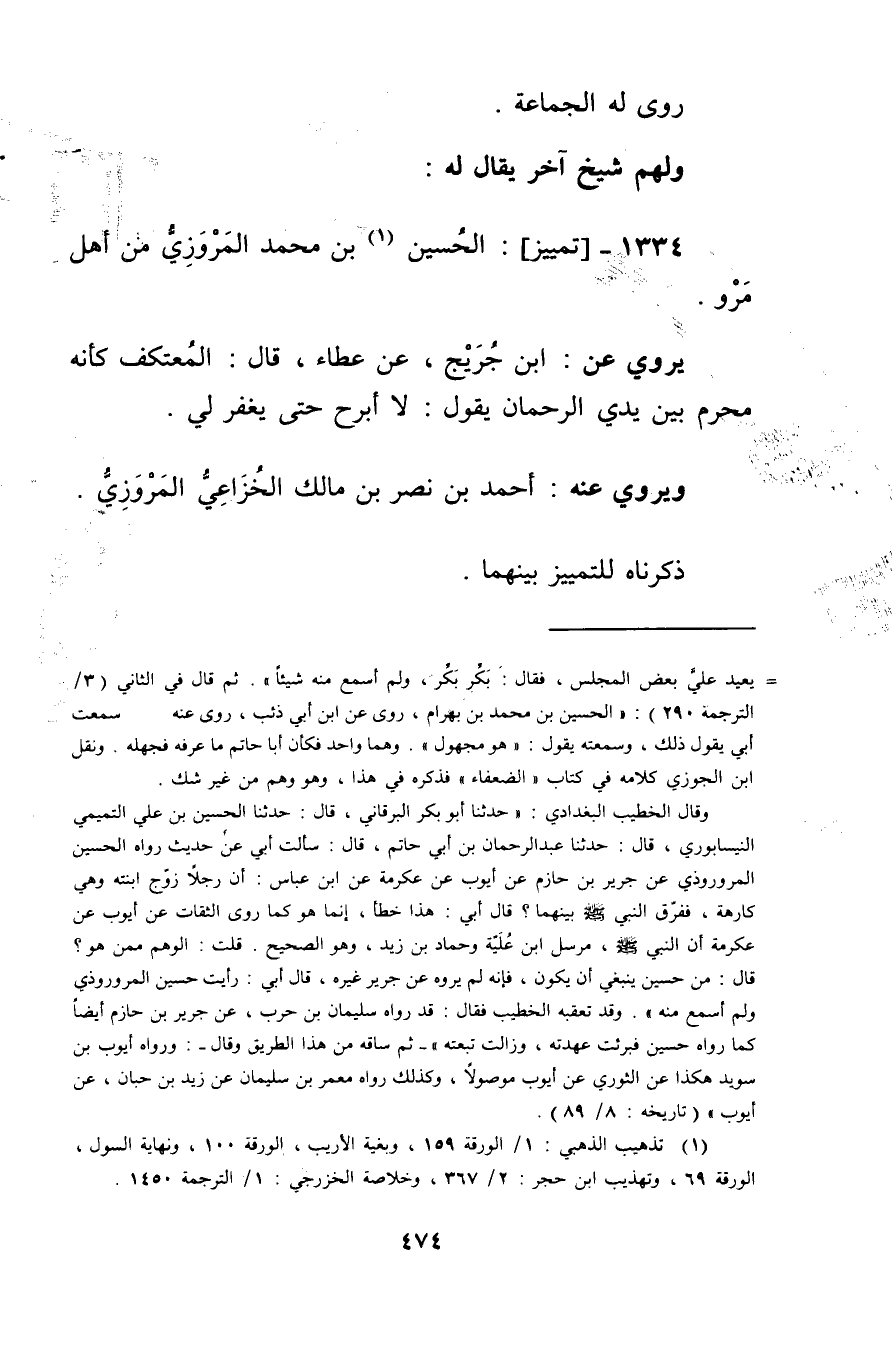 روى له الجماعة .
ولهم شيخ آخر يقال له :
١٣٣٤ ـ [تمييز] : الحُسين (١) بن محمد المَرْوَزِيُّ من أهل
مَرْو .
يروي عن : ابن جُرَيْج ، عن عطاء ، قال : المُعتكف كأنه
محرم بين يدي الرحمان يقول : لا أبرح حتى يغفر لي .
ويروي عنه : أحمد بن نصر بن مالك الخُزَاعِيُّ المَرْوَزِيُّ .
ذكرناه للتمييز بينهما .
= يعيد عليَّ بعض المجلس ، فقال : بَكْر بَكْر ، ولم أسمع منه شيئاً » . ثم قال في الثاني ( ٣/
الترجمة ٢٩٠ ) : « الحسين بن محمد بن بهرام ، روى عن ابن أبي ذئب ، روى عنه سمعت
أبي يقول ذلك ، وسمعته يقول : « هو مجهول » . وهما واحد فكأن أبا حاتم ما عرفه فجهله . ونقل
ابن الجوزي كلامه في كتاب « الضعفاء » فذكره في هذا ، وهو وهم من غير شك .
وقال الخطيب البغدادي : « حدثنا أبو بكر البرقاني ، قال : حدثنا الحسين بن علي التميمي
النيسابوري ، قال : حدثنا عبدالرحمان بن أبي حاتم ، قال : سألت أبي عن حديث رواه الحسين
المروروذي عن جرير بن حازم عن أيوب عن عكرمة عن ابن عباس : أن رجلاً زوّج ابنته وهي
كارهة ، ففرّق النبي ﷺ بينهما ؟ قال أبي : هذا خطأ ، إنما هو كما روى الثقات عن أيوب عن
عكرمة أن النبي ﷺ ، مرسل ابن عُلَيّة وحماد بن زيد ، وهو الصحيح . قلت : الوهم ممن هو ؟
قال : من حسين ينبغي أن يكون ، فإنه لم يروه عن جرير غيره ، قال أبي : رأيت حسين المروروذي
ولم أسمع منه » . وقد تعقبه الخطيب فقال : قد رواه سليمان بن حرب ، عن جرير بن حازم أيضاً
كما رواه حسين فبرئت عهدته ، وزالت تبعته » ـ ثم ساقه من هذا الطريق وقال ـ : ورواه أيوب بن
سويد هكذا عن الثوري عن أيوب موصولاً ، وكذلك رواه معمر بن سليمان عن زيد بن حبان ، عن
أيوب » ( تاريخه : ٨/ ٨٩ ) .
(١) تذهيب الذهبي : ١/ الورقة ١٥٩ ، وبغية الأريب ، الورقة ١٠٠ ، ونهاية السول ،
الورقة ٦٩ ، وتهذيب ابن حجر : ٢/ ٣٦٧ ، وخلاصة الخزرجي : ١/ الترجمة ١٤٥٠ .
٤٧٤